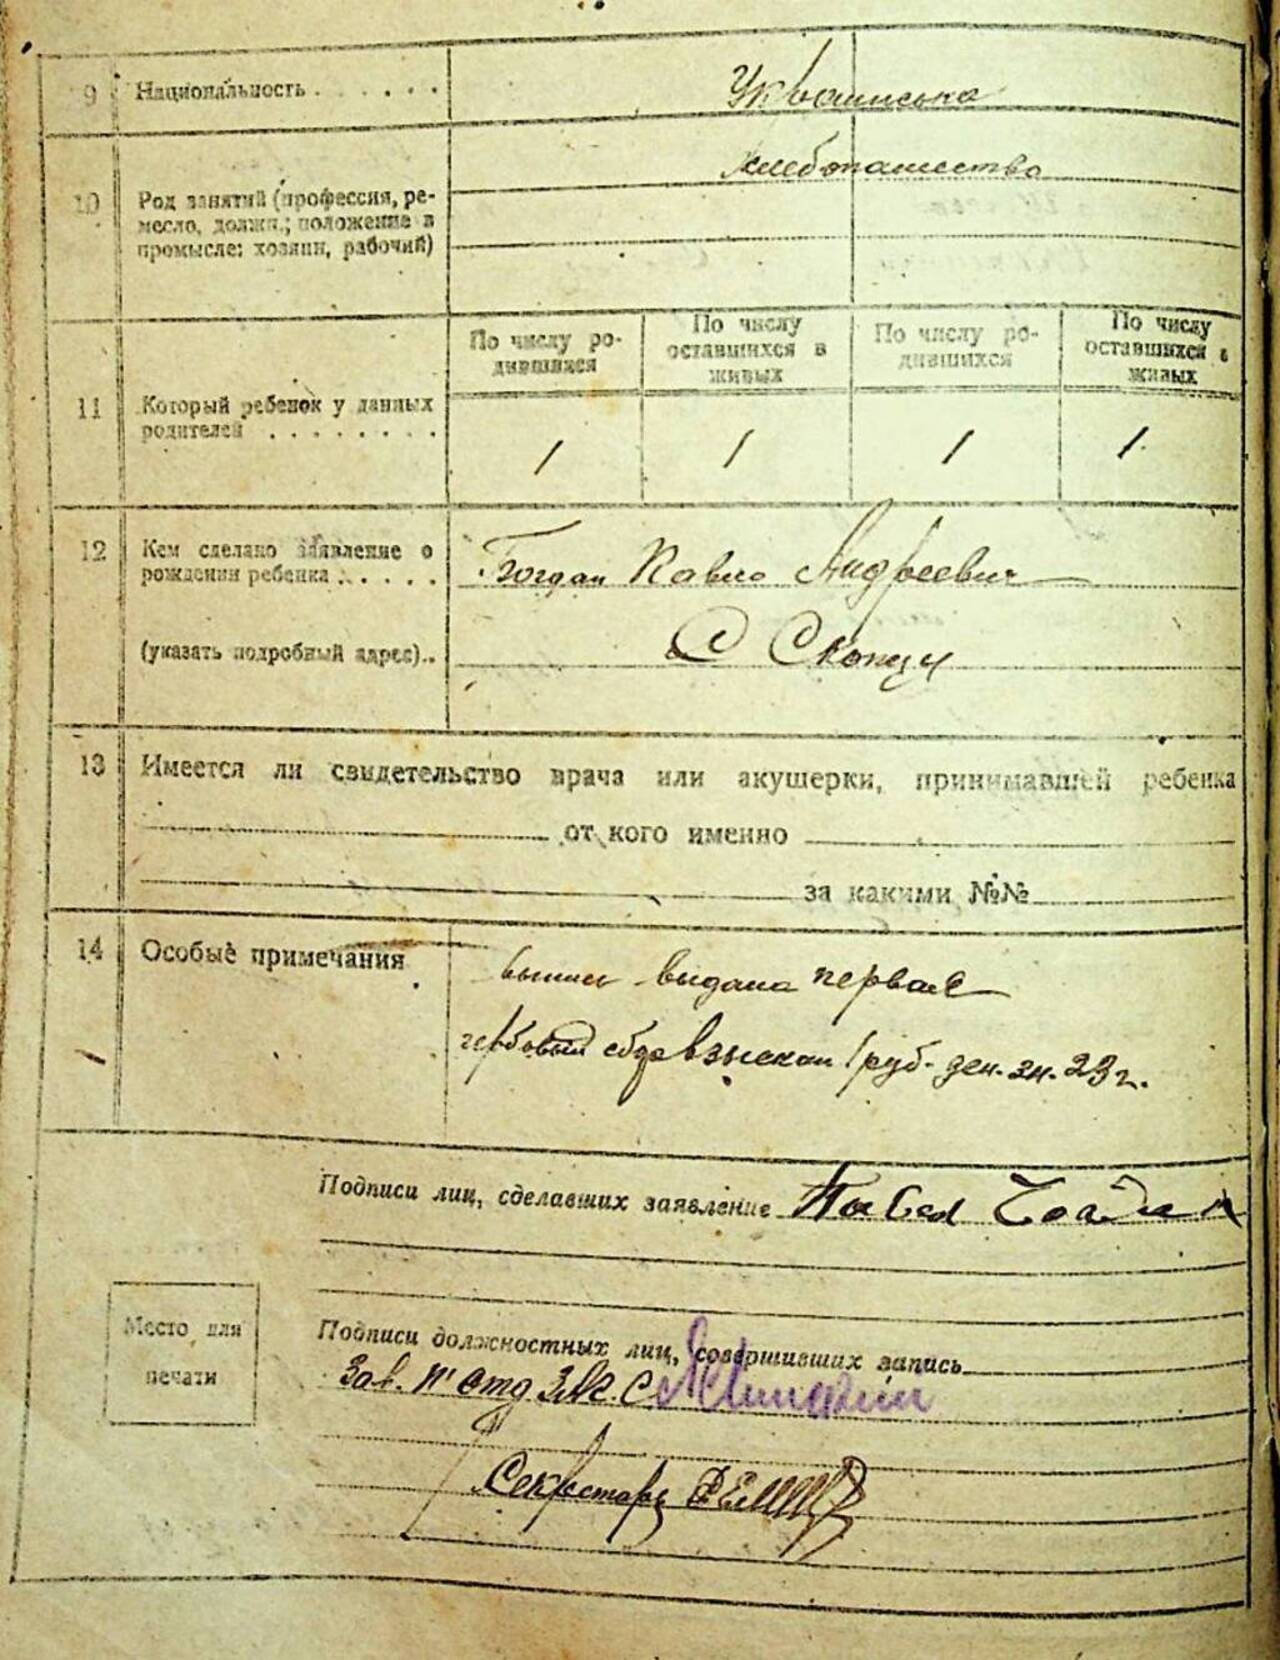 9 Национальность . . . . . . Українська
10 Род занятий (профессия, ре-
месло, должн.; положение в
промысле: хозяин, рабочий)
хлебопашество
По числу ро-
дившихся
По числу
оставшихся в
живых
По числу ро-
дившихся
По числу
оставшихся в
живых
11 Который ребенок у данных
родителей . . . . . . . .
1 1 1 1
12 Кем сделано заявление о
рождении ребенка . . . . .
Богдан Павло Андреевич
(указать подробный адрес)..
С Скопци
13 Имеется ли свидетельство врача или акушерки, принимавшей ребенка
от кого именно
за какими №№
14 Особые примечания
выпись выдана первая
гербовый сбор взыскан 1 руб. ден. зн. 23 г.
Подписи лиц, сделавших заявление Павел Богдан
Место для
печати
Подписи должностных лиц, совершивших запись
Зав. П отд
Секретарь